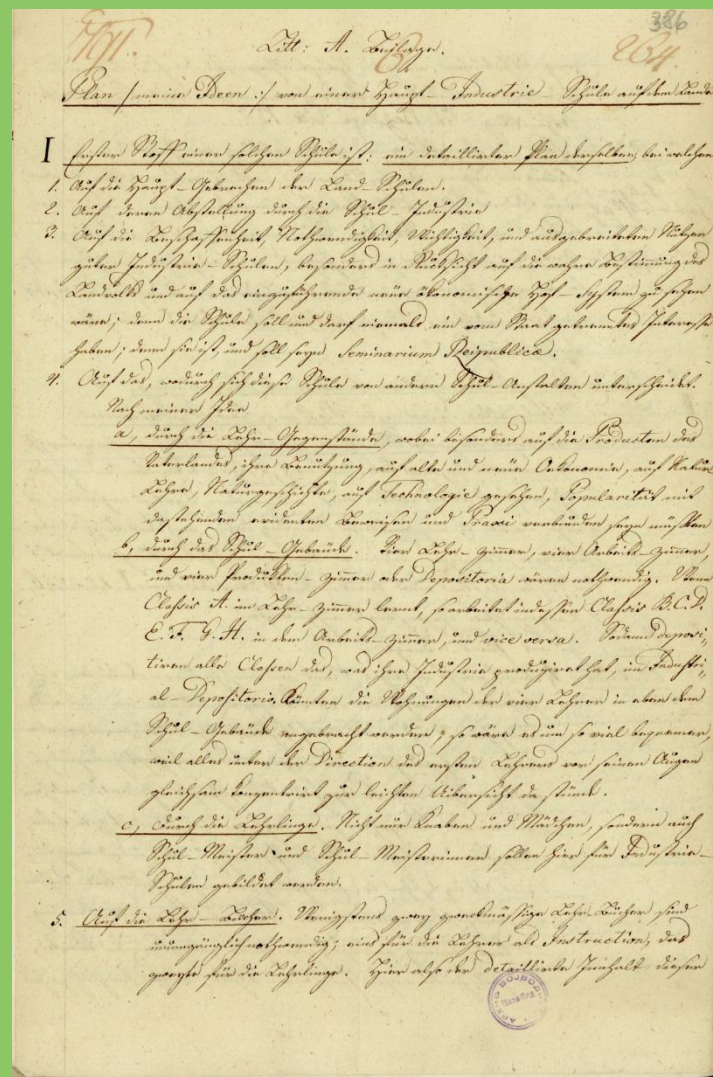 386
Litt: A. Beilage.
264.
Plan /: meiner Ideen :/ von einer Haupt-Industrie-Schule auf dem Lande
I Erster Stoff einer solchen Schule ist: ein detaillirter Plan derselben, bei welchem
1. Auf die Haupt-Gebrechen der Land-Schulen.
2. Auf deren Abstellung durch die Schul-Industrie
3. Auf die Beschaffenheit, Nothwendigkeit, Wichtigkeit, und ausgebreiteten Nutzen
guter Industrie-Schulen, besonders in Rücksicht auf die wahre Bestimmung des
Landvolks und auf das einzuführende neue ökonomische Hof-System zu sehen
wäre; denn die Schule soll und darf niemals ein vom Staat getrenntes Interesse
haben; denn sie ist, und soll seyn Seminarium Reipublicæ.
4. Auf das, wodurch sich diese Schule von andern Schul-Anstalten unterscheidet.
Nach meiner Idee
a, durch die Lehr-Gegenstände, wobei besonders auf die Producten des
Vaterlandes, ihre Benutzung, auf alte und neue Oekonomie, auf Natur-
Lehre, Naturgeschichte, auf Technologie gesehen, Popularität mit
dastehenden evidenten Beweisen und Praxi verbunden seyn müssten
b, durch das Schul-Gebäude. Vier Lehr-Zimmer, vier Arbeits-Zimmer,
und vier Produkten-Zimmer oder Depositoria wären nothwendig. Wenn
Classis A. im Lehr-Zimmer lernt, so arbeitet indessen Classis B. C. D.
E. F. G. H. in dem Arbeits-Zimmer, und vice versa. Sodann deposi-
tiren alle Classen das, was ihre Industrie produziret hat, im Industri-
al-Depositorio. Könnten die Wohnungen der vier Lehrer in eben dem
Schul-Gebäude angebracht werden, so wäre es um so viel bequemer,
weil alles unter der Direction des ersten Lehrers vor seinen Augen
gleichsam konzentrirt zur leichten Uibersicht da stünde.
c, Durch die Lehrlinge. Nicht nur Knaben und Mädchen, sondern auch
Schul-Meister und Schul-Meisterinnen sollen hier für Industrie-
Schulen gebildet werden.
5. Auf die Lehr-Bücher. Wenigstens zwey zweckmässige Lehr Bücher sind
unumgänglich nothwendig; eins für die Lehrer als Instruction, das
zweyte für die Lehrlinge. Hier also der detaillirte Innhalt dieser